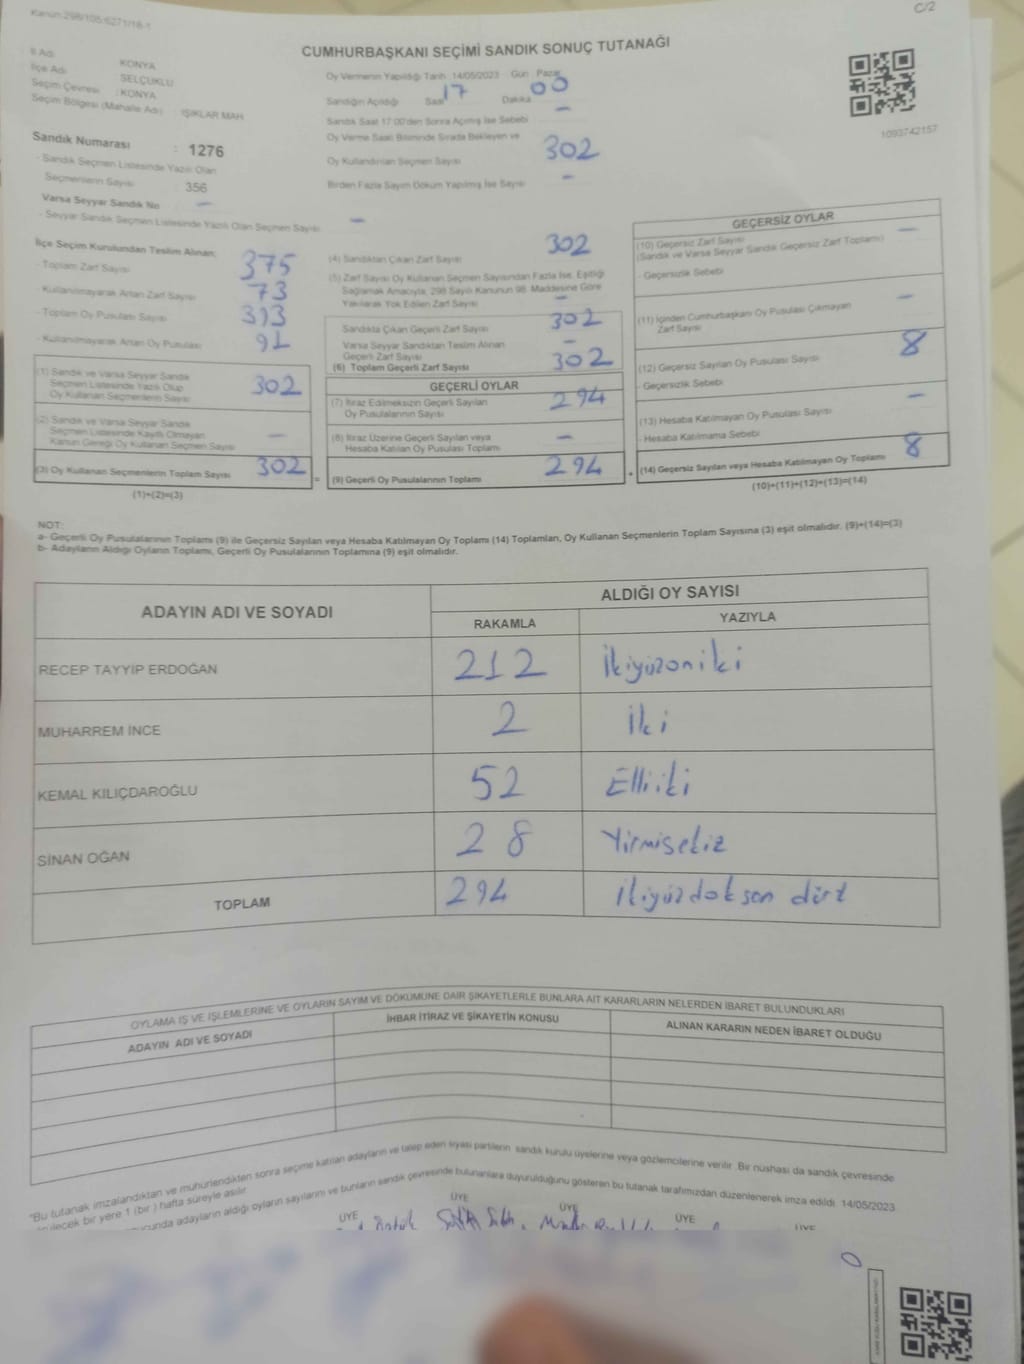 Kanun:298/105;6271/18-1
C/2
CUMHURBAŞKANI SEÇİMİ SANDIK SONUÇ TUTANAĞI
İl Adı KONYA
İlçe Adı SELÇUKLU
Seçim Çevresi : KONYA
Seçim Bölgesi (Mahalle Adı) : IŞIKLAR MAH
Sandık Numarası : 1276
- Sandık Seçmen Listesinde Yazılı Olan
Seçmenlerin Sayısı : 356
Varsa Seyyar Sandık No —
- Seyyar Sandık Seçmen Listesinde Yazılı Olan Seçmen Sayısı —
Oy Vermenin Yapıldığı Tarih :14/05/2023 Gün : Pazar
Sandığın Açıldığı Saat 17 Dakika 00
Sandık Saat 17:00'den Sonra Açılmış İse Sebebi —
Oy Verme Saati Bitiminde Sırada Bekleyen ve
Oy Kullandırılan Seçmen Sayısı 302
Birden Fazla Sayım Döküm Yapılmış İse Sayısı —
1093742157
İlçe Seçim Kurulundan Teslim Alınan;
- Toplam Zarf Sayısı 375
- Kullanılmayarak Artan Zarf Sayısı 73
- Toplam Oy Pusulası Sayısı 393
- Kullanılmayarak Artan Oy Pusulası 91
(1) Sandık ve Varsa Seyyar Sandık
Seçmen Listesinde Yazılı Olup
Oy Kullanan Seçmenlerin Sayısı 302
(2) Sandık ve Varsa Seyyar Sandık
Seçmen Listesinde Kayıtlı Olmayan
Kanun Gereği Oy Kullanan Seçmen Sayısı —
(3) Oy Kullanan Seçmenlerin Toplam Sayısı 302
(1)+(2)=(3)
(4) Sandıktan Çıkan Zarf Sayısı 302
(5) Zarf Sayısı Oy Kullanan Seçmen Sayısından Fazla İse, Eşitliği
Sağlamak Amacıyla, 298 Sayılı Kanunun 98. Maddesine Göre
Yakılarak Yok Edilen Zarf Sayısı —
Sandıkta Çıkan Geçerli Zarf Sayısı 302
Varsa Seyyar Sandıktan Teslim Alınan
Geçerli Zarf Sayısı —
(6) Toplam Geçerli Zarf Sayısı 302
GEÇERLİ OYLAR
(7) İtiraz Edilmeksizin Geçerli Sayılan
Oy Pusulalarının Sayısı 294
(8) İtiraz Üzerine Geçerli Sayılan veya
Hesaba Katılan Oy Pusulası Toplamı —
(9) Geçerli Oy Pusulalarının Toplamı 294
GEÇERSİZ OYLAR
(10) Geçersiz Zarf Sayısı —
(Sandık ve Varsa Seyyar Sandık Geçersiz Zarf Toplamı)
- Geçersizlik Sebebi
(11) İçinden Cumhurbaşkanı Oy Pusulası Çıkmayan
Zarf Sayısı —
(12) Geçersiz Sayılan Oy Pusulası Sayısı 8
- Geçersizlik Sebebi
(13) Hesaba Katılmayan Oy Pusulası Sayısı —
- Hesaba Katılmama Sebebi
(14) Geçersiz Sayılan veya Hesaba Katılmayan Oy Toplamı 8
(10)+(11)+(12)+(13)=(14)
NOT:
a- Geçerli Oy Pusulalarının Toplamı (9) ile Geçersiz Sayılan veya Hesaba Katılmayan Oy Toplamı (14) Toplamları, Oy Kullanan Seçmenlerin Toplam Sayısına (3) eşit olmalıdır. (9)+(14)=(3)
b- Adayların Aldığı Oyların Toplamı, Geçerli Oy Pusulalarının Toplamına (9) eşit olmalıdır.
ADAYIN ADI VE SOYADI ALDIĞI OY SAYISI
RAKAMLA YAZIYLA
RECEP TAYYİP ERDOĞAN 212 İkiyüzoniki
MUHARREM İNCE 2 İki
KEMAL KILIÇDAROĞLU 52 Elliiki
SİNAN OĞAN 28 Yirmisekiz
TOPLAM 294 İkiyüzdoksan dört
OYLAMA İŞ VE İŞLEMLERİNE VE OYLARIN SAYIM VE DÖKÜMÜNE DAİR ŞİKAYETLERLE BUNLARA AİT KARARLARIN NELERDEN İBARET BULUNDUKLARI
ADAYIN ADI VE SOYADI İHBAR İTİRAZ VE ŞİKAYETİN KONUSU ALINAN KARARIN NEDEN İBARET OLDUĞU
"Bu tutanak imzalandıktan ve mühürlendikten sonra seçime katılan adayların ve talep eden siyasi partilerin sandık kurulu üyelerine veya gözlemcilerine verilir .Bir nüshası da sandık çevresinde
bir yere 1 (bir ) hafta süreyle asılır.
adayların aldığı oyların sayılarını ve bunların sandık çevresinde bulunanlara duyurulduğunu gösteren bu tutanak tarafımızdan düzenlenerek imza edildi. 14/05/2023
ÜYE ÜYE ÜYE ÜYE ÜYE